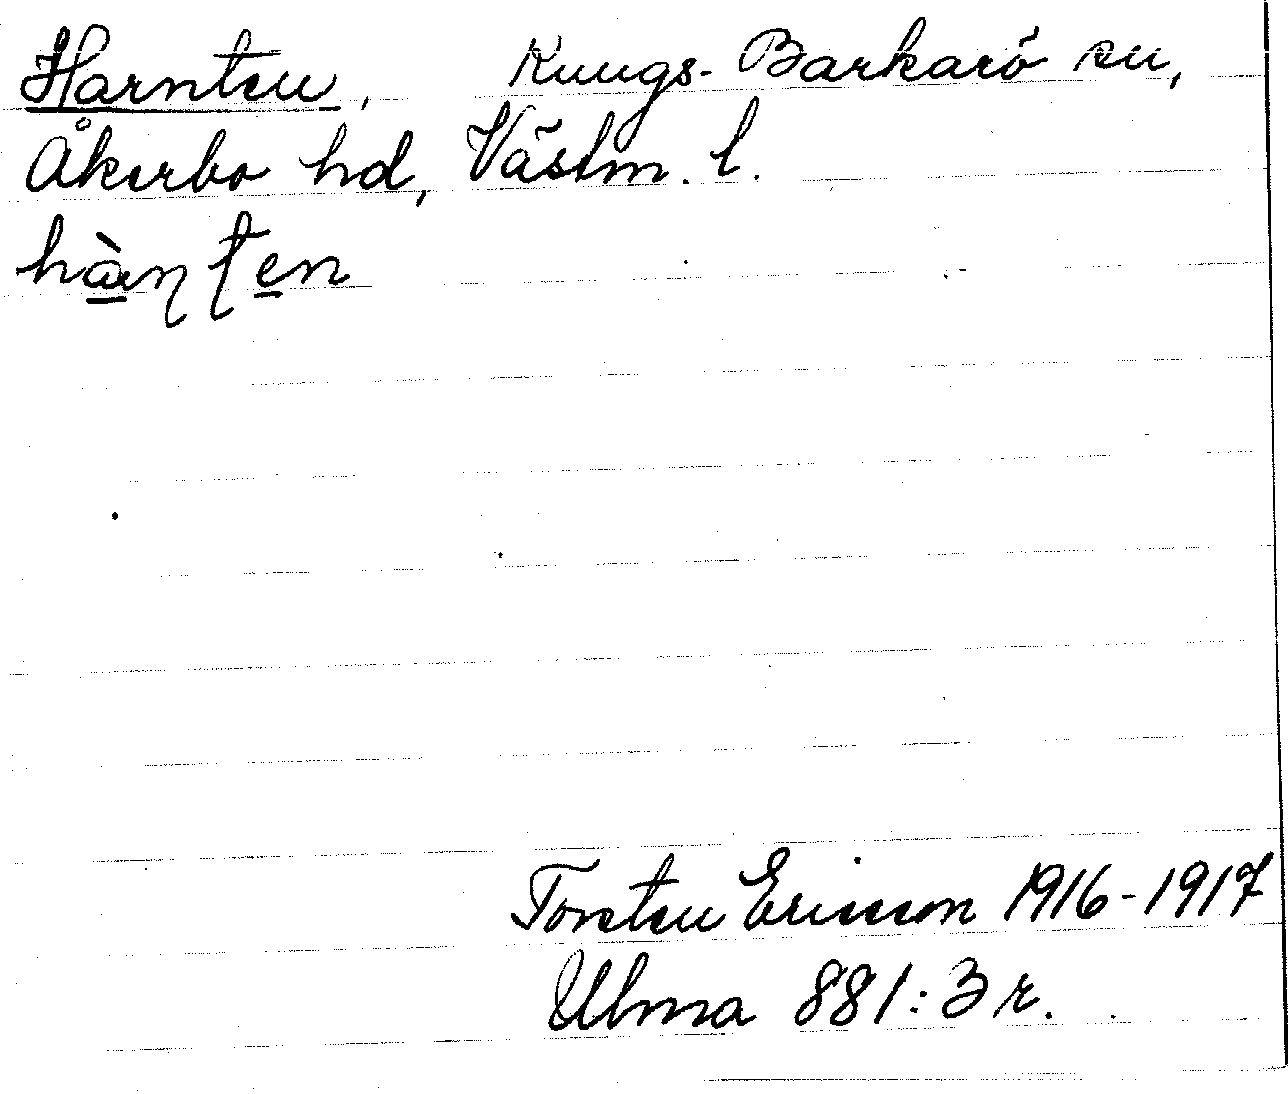 Harnten, Kungs-Barkarö sn,
Åkerbo hd, Västm. l.
hàɳʈen
Torsten Ericson 1916-1917
Ulma 881:3 r.